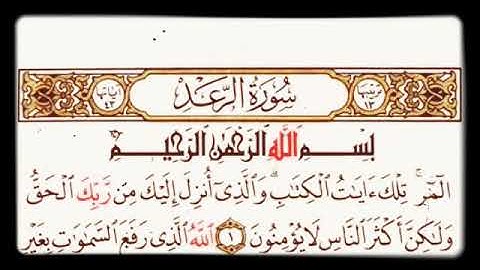 ترتيبها ١٣ سُورَةُ الرَّعْدِ آياتها ٤٣
بِسْمِ ٱللَّهِ ٱلرَّحْمَٰنِ ٱلرَّحِيمِ
الٓمٓرۚ تِلْكَ ءَايَٰتُ ٱلْكِتَٰبِۗ وَٱلَّذِىٓ أُنزِلَ إِلَيْكَ مِن رَّبِّكَ ٱلْحَقُّ
وَلَٰكِنَّ أَكْثَرَ ٱلنَّاسِ لَا يُؤْمِنُونَ ١ ٱللَّهُ ٱلَّذِى رَفَعَ ٱلسَّمَٰوَٰتِ بِغَيْرِ